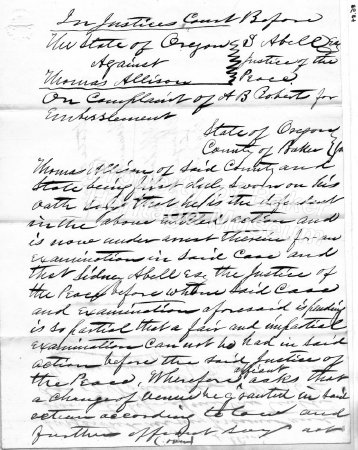 In Justices Court Before
The State of Oregon S Abell Esq
Against Justice of the
Thomas Allison Peace
On Complaint of A B Robert for
Embisslement
State of Oregon
County of Baker
Thomas Allison of Said County and
State being first duly sworn on his
oath that he is the defendant
in the above action and
is now under arrest therein for an
examination in Said Case and
that Sidney Abell Esq the Justice of
the Peace before whom Said Case
and examination aforesaid is pending
is so partial that a fair and impartial
examination cannot be had in said
action before the said Justice of
the Peace. Wherefore affiant asks that
a change of venue be granted in said
action according to law and
further affiant says not
(over)